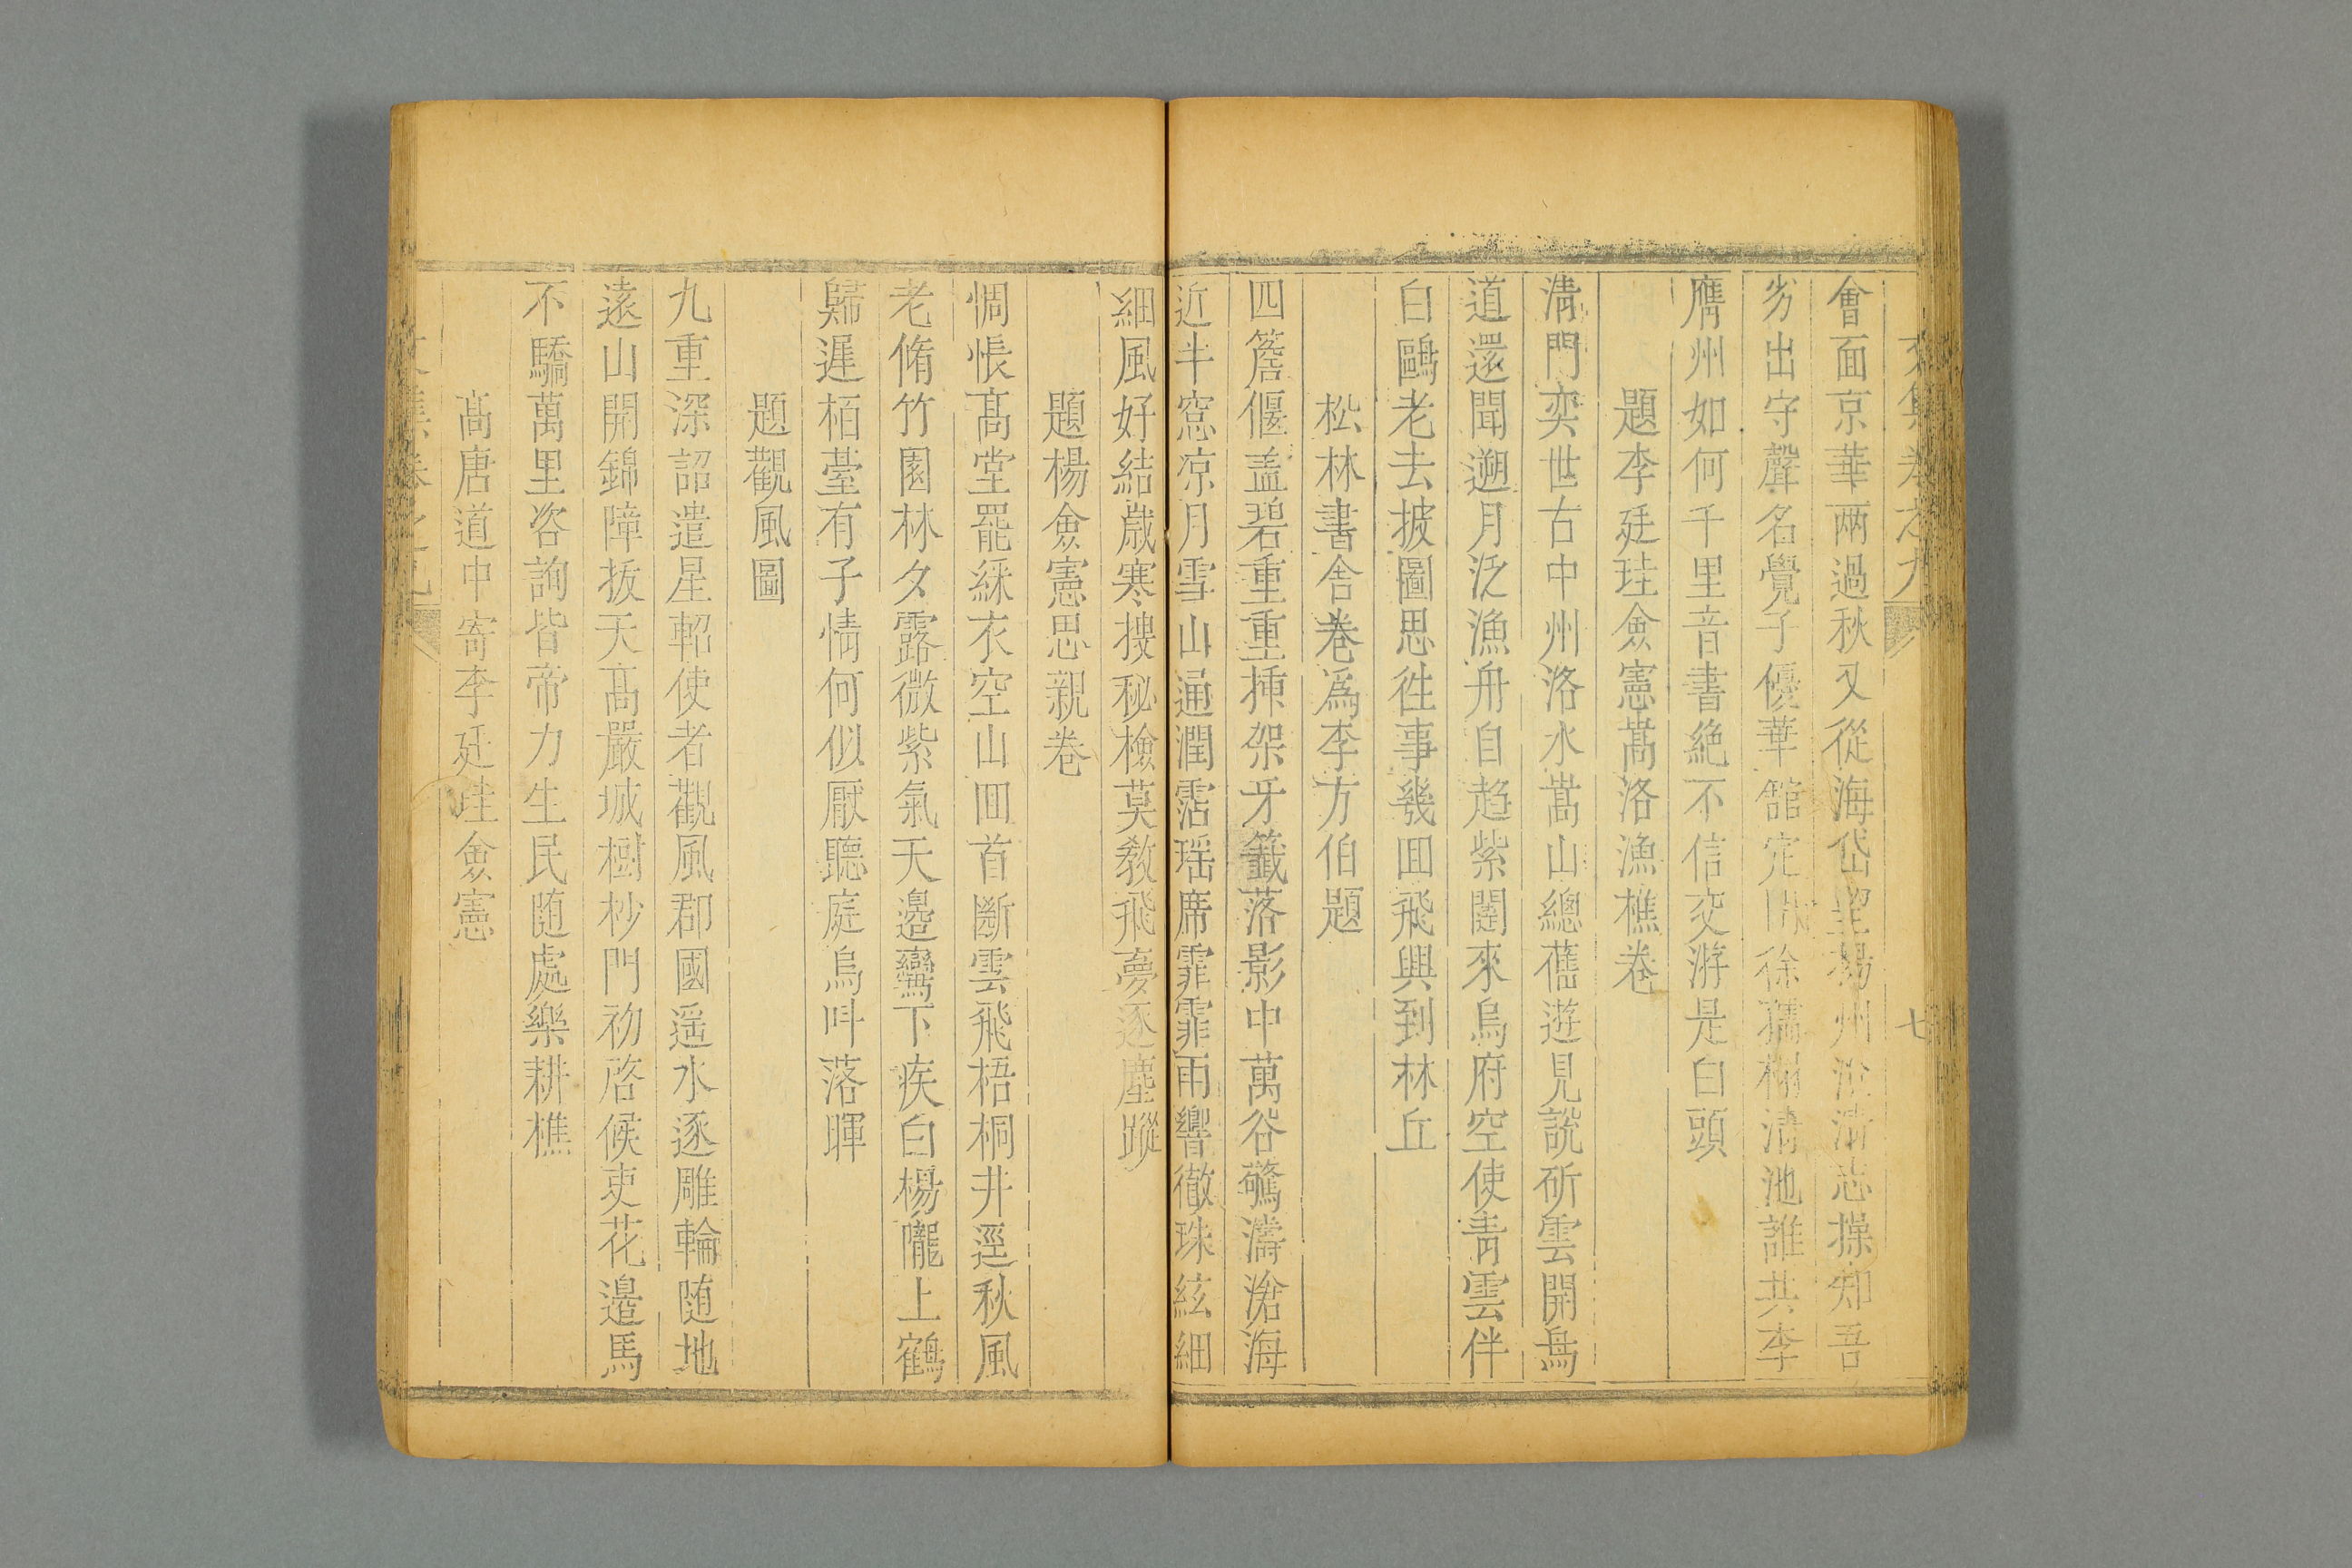 文集卷之九 七
會面京華兩過秋又從海岱望楊州冰清志操知吾
劣出守聲名覺子優華舘定開徐孺榻清池誰共李
膺州如何千里音書絶不信交游是白頭
題李廷珪僉憲嵩洛漁樵卷
清門奕世古中州洛水嵩山總舊遊見説斫雲開鳥
道還聞遡月泛漁舟自趋紫閣來烏府空使青雲伴
白鷗老去披圖思徃事幾囬飛興到林丘
松林書舎卷爲李方伯題
四簷偃盖碧重重揷架牙籤落影中萬谷驚濤滄海
近半窓凉月雪山通潤霑瑶席霏霏雨響徹珠絃細
細風好結歳寒搜秘檢莫教飛夢逐塵蹤
題楊僉憲思親卷
惆悵髙堂罷綵衣空山囬首斷雲飛梧桐井逕秋風
老脩竹園林夕露微紫氣天邉鸞下疾白楊隴上鶴
歸遲栢䑓有子情何似厭聽庭烏呌落暉
題觀風圖
九重深詔遣星軺使者觀風郡國遥水逐雕輪随地
遠山開錦障拔天髙嚴城樹杪門初啓候吏花邉馬
不驕萬里咨詢皆帝力生民随處樂耕樵
髙唐道中寄李廷珪僉憲
文集卷之九